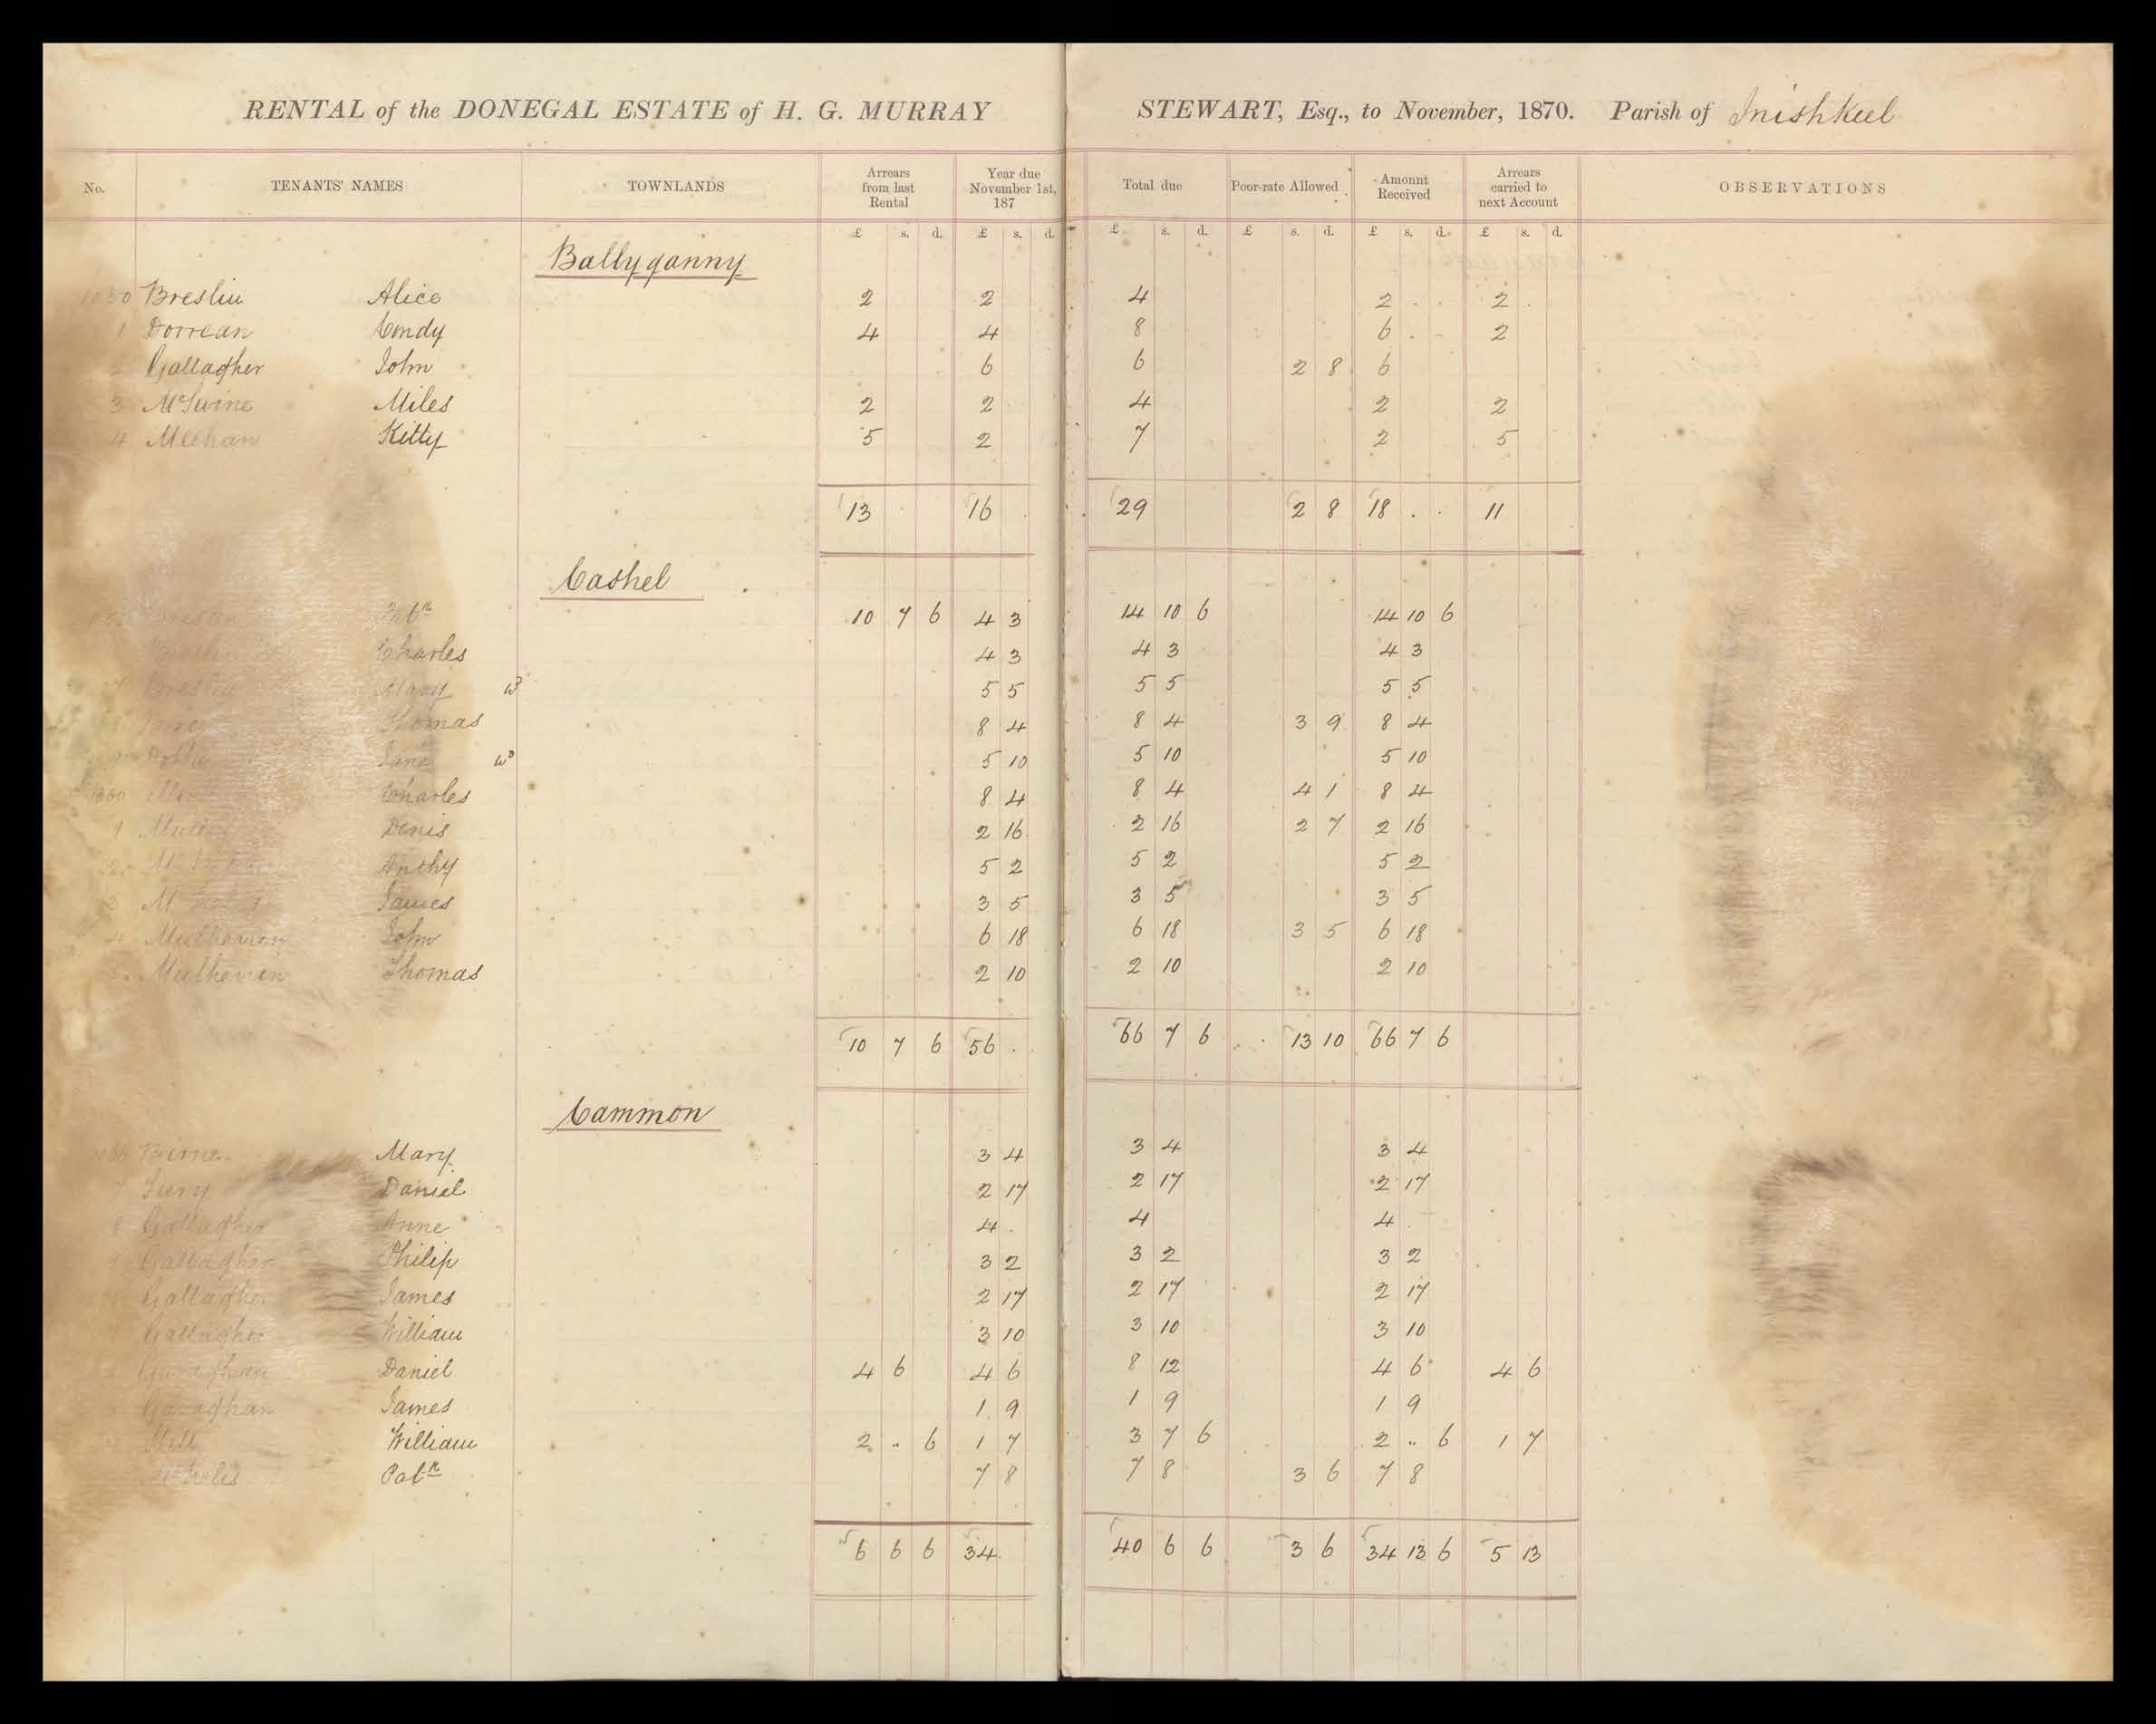 RENTAL of the DONEGAL ESTATE of H. G. MURRAY STEWART, Esq., to November, 1870. Parish of Inishkeel
No. TENANTS' NAMES TOWNLANDS Arrears from last Rental Year due November 1st, 187 Total due Poor-rate Allowed Amount Received Arrears carried to next Account OBSERVATIONS
£ s. d. £ s. d. £ s. d. £ s. d. £ s. d. £ s. d.
Ballyganny
1050 Breslin Alice 2 2 4 2 . . 2 .
1 Dorrean Condy 4 4 8 6 . . 2
2 Gallagher John 6 6 2 8 6
3 McSwine Miles 2 2 4 2 2
4 Meehan Kitty 5 2 7 2 5
13 16 29 2 8 18 . . 11
Cashel
Breslin Patk 10 7 6 4 3 14 10 6 14 10 6
Breslin Charles 4 3 4 3 4 3
7 Breslin Mary wd 5 5 5 5 5 5
Thomas 8 4 8 4 3 9 8 4
Jane wd 5 10 5 10 5 10
1060 Charles 8 4 8 4 4 1 8 4
1 Denis 2 16 2 16 2 7 2 16
2 Anthy 5 2 5 2 5 2
James 3 5 3 5 3 5
4 Mulhernen John 6 18 6 18 3 5 6 18
Mulhernen Thomas 2 10 2 10 2 10
10 7 6 56 . 66 7 6 13 10 66 7 6
Cammon
Mary 3 4 3 4 3 4
7 Daniel 2 17 2 17 2 17
8 Gallagher Anne 4 . 4 4 .
9 Gallagher Philip 3 2 3 2 3 2
Gallagher James 2 17 2 17 2 17
Gallagher William 3 10 3 10 3 10
Gavaghan Daniel 4 6 4 6 8 12 4 6 4 6
Gavaghan James 1 9 1 9 1 9
William 2 .. 6 1 7 3 7 6 2 .. 6 1 7
Patk 7 8 7 8 3 6 7 8
6 6 6 34 40 6 6 3 6 34 13 6 5 13